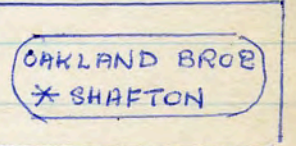 OAKLAND BROS
* SHAFTON